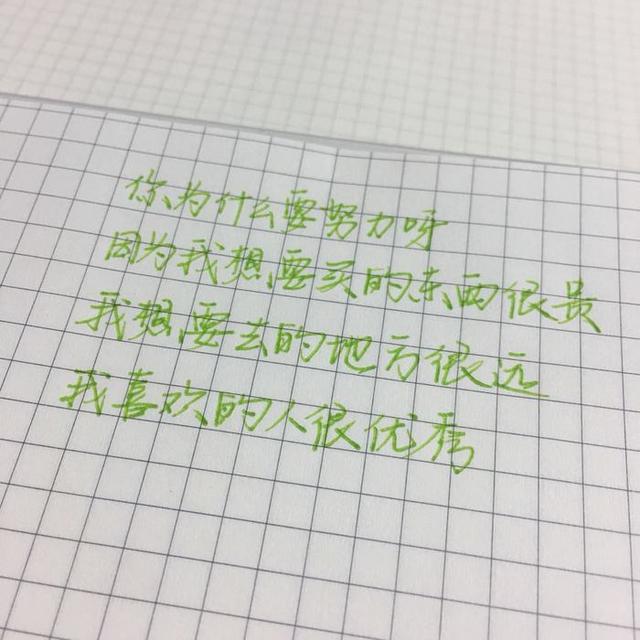 你为什么要努力呀
因为我想要买的东西很贵
我想要去的地方很远
我喜欢的人很优秀